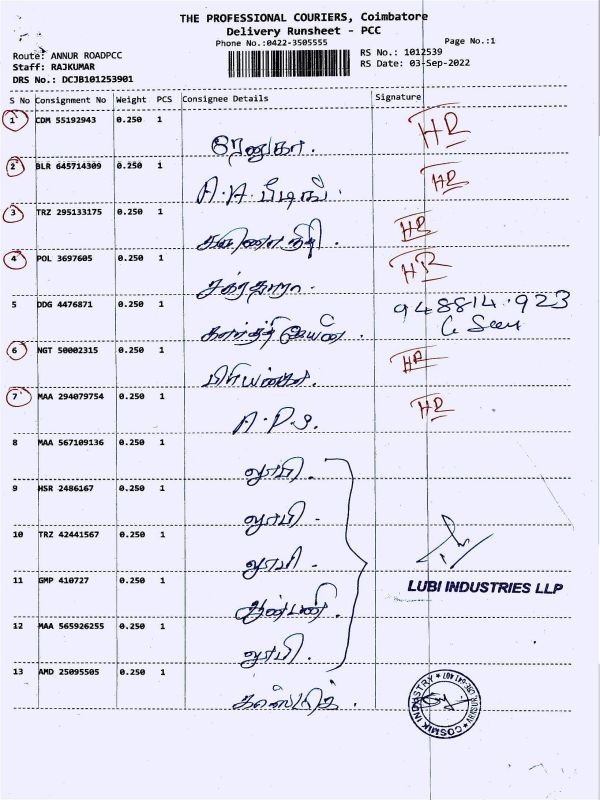 THE PROFESSIONAL COURIERS, Coimbatore
Delivery Runsheet - PCC
Phone No.:0422-3505555
Page No.:1
Route: ANNUR ROADPCC
RS No.: 1012539
Staff: RAJKUMAR
RS Date: 03-Sep-2022
DRS No.: DCJB101253901
S No Consignment No Weight PCS Consignee Details Signature
1 CDM 55192943 0.250 1
ரேணுகா. HR
2 BLR 645714309 0.250 1
A.A HR
3 TRZ 295133175 0.250 1
HR
4 POL 3697605 0.250 1
HR
5 DDG 4476871 0.250 1
948814.923
6 NGT 50002315 0.250 1
பிரியங்கா. HR
7 MAA 294079754 0.250 1
A.P.S. HR
8 MAA 567109136 0.250 1
லூபி.
9 HSR 2486167 0.250 1
லூபி -
10 TRZ 42441567 0.250 1
லூபி -
11 GMP 410727 0.250 1
LUBI INDUSTRIES LLP
12 MAA 565926255 0.250 1
லூபி.
13 AMD 25095505 0.250 1
COSMIK INDUSTRY